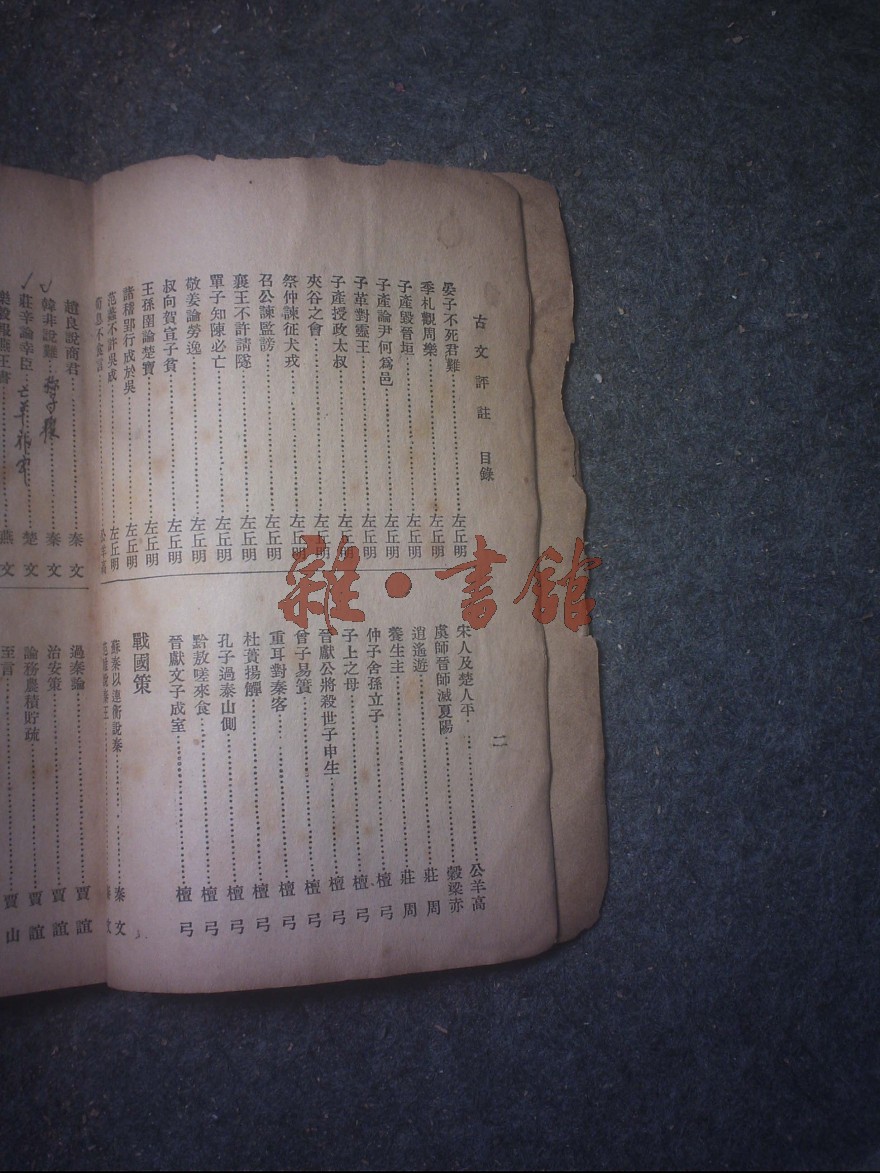 古文評註 目錄
二
晏子不死君難 左丘明
季札觀周樂 左丘明
子產毀晉垣 左丘明
子產論尹何爲邑 左丘明
子革對靈王 左丘明
子產授政太叔 左丘明
夾谷之會 左丘明
祭仲諫征犬戎 左丘明
召公諫監謗 左丘明
襄王不許請隧 左丘明
單子知陳必亡 左丘明
敬姜論勞逸 左丘明
叔向賀宣子貧 左丘明
王孫圉論楚寶 左丘明
諸稽郢行成於吳 左丘明
范蠡不許吳成 左丘明
荀息不食言 公羊高
宋人及楚人平 公羊高
虞師晉師滅夏陽 穀梁赤
逍遙遊 莊周
養生主 莊周
仲子舍孫立子 檀弓
子上之母 檀弓
晉獻公將殺世子申生 檀弓
曾子易簀 檀弓
重耳對秦客 檀弓
杜蕢揚觶 檀弓
孔子過泰山側 檀弓
黔敖嗟來食 檀弓
晉獻文子成室 檀弓
戰國策
蘇秦以連衡說秦 秦文
趙良說商君 秦文
韓非說難 秦文
莊辛論幸臣 楚文
樂毅報燕王書 燕文
過秦論 賈誼
治安策 賈誼
論務農積貯疏 賈誼
至言 賈山
雜·書館